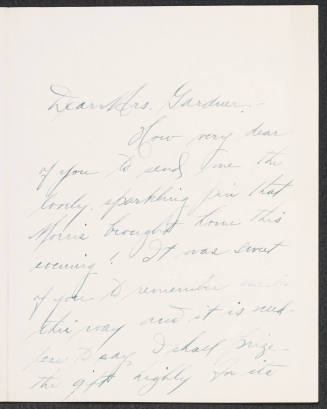 Dear Mrs. Gardner:-
How very dear
of you to send me the
lovely, sparkling pin that
Morris brought home this
evening! It was sweet
of you to remember me in
this way and it is need-
less to say I shall prize
the gift highly for its